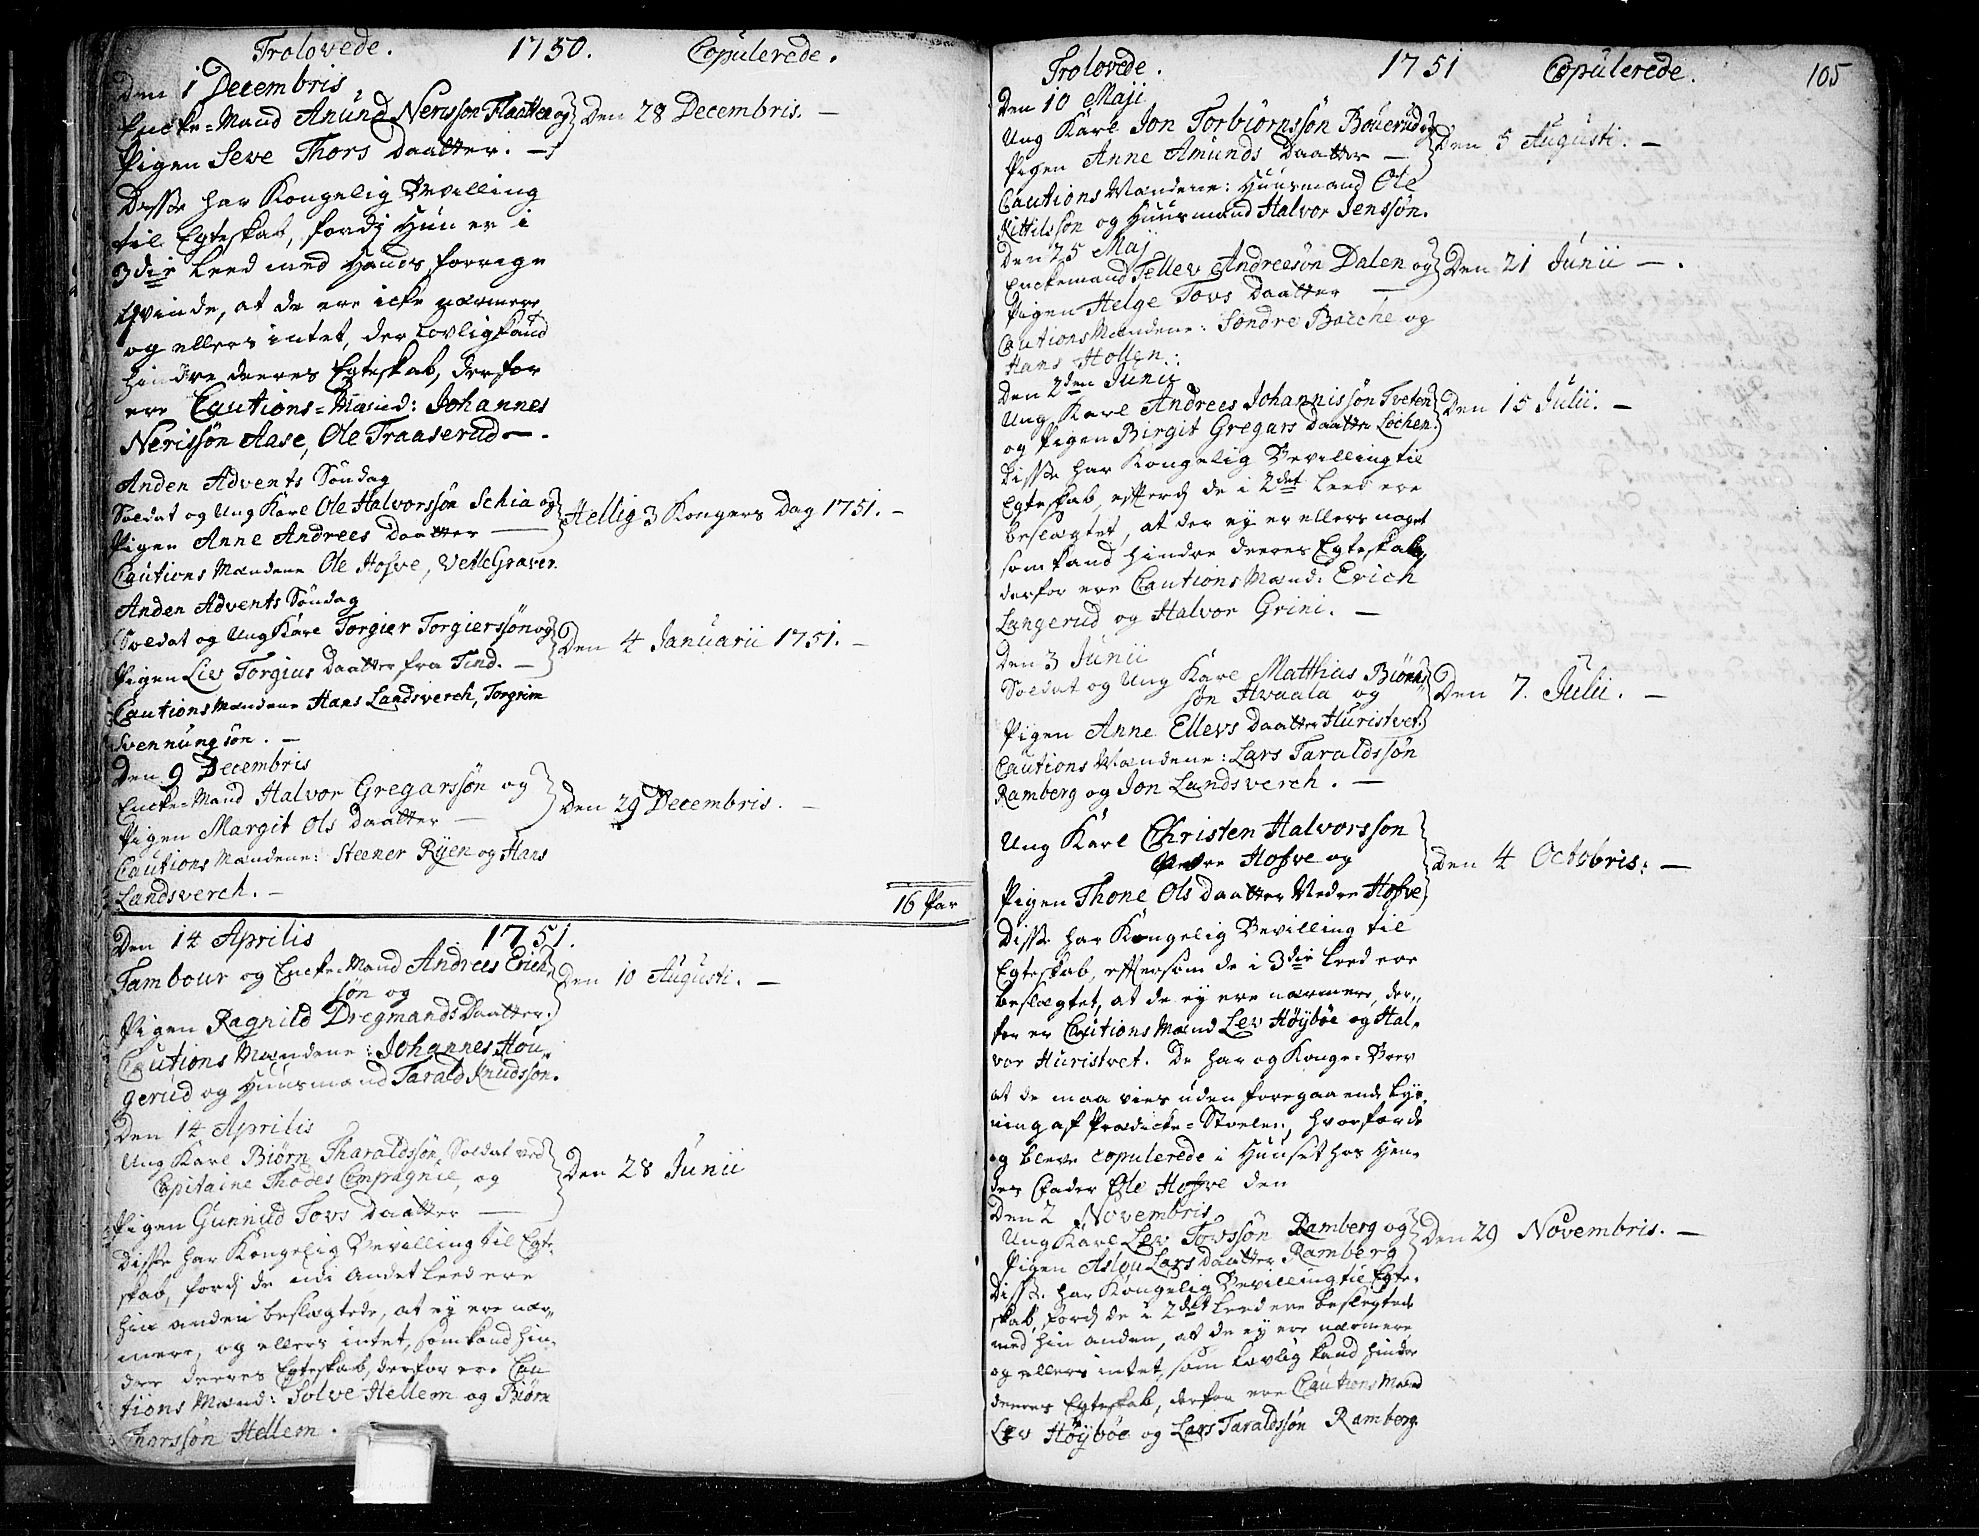 Trolovede. 1750. Copulerede.
Den 1 Decembris
Encke-Mand Anund Nerisson Flaatten og Den 28 Decembris. —
Pigen Seve Thors Daatter. —
Disse har Kongelig Bevilling
til Egteskab, fordj Hun er i
3die Leed med Hands forrige
Qvinde, at de ere icke nærmere
og ellers intet, der Lovlig kand
hindre deeres Egteskab, derfor
ere Cautions-Mænd: Johannes
Nerissøn Aase, Ole Traaserud —.
Anden Advents Søndag
Soldat og Ung Karl Ole Halvorssøn Schia og Hellig 3 Kongers Dag 1751. —
Pigen Anne Andrees Daatter —
Cautions Mændene Ole Hofve, Vetle Graver.
Anden Advents Søndag
Soldat og Ung Karl Torgier Torgierssøn og Den 4 Januarii 1751. —
Pigen Liv Torgius Daatter fra Tind. —
Cautions Mændene Hans Landsverch, Torgrim
Svennungsøn. —
Den 9 Decembris
Encke-Mand Halvor Gregarssøn og Den 29 Decembris. —
Pigen Margit Ols Daatter —
Cautions Mændene: Steener Ryen og Hans
Landsverch. —
16 Par
1751.
Den 14 Aprilis
Tambour og Encke-Mand Andrees Erich Den 10 Augusti. —
søn og
Pigen Ragnild Dregmands Daatter.
Cautions Mændene: Johannes Hou,,
gerud og Huusmand Tarald Knudssøn.
Den 14 Aprilis
Ung Karl Biørn Tharaldssøn, Soldat ved Den 28 Junii
Capitaine Thodes Compagnie, og
Pigen Gunnild Tovs Daatter —
Disse har Kongelig Bevilling til Egte-
skab, fordj de udi Andet Leed ere
hin anden beslægtede, at ey ere nær-
mere, og ellers intet, som kand hin-
dre deeres Egteskab, derfor ere Cau
tions Mænd: Solve Hellem og Biørn
Tharssøn Hellem.
Trolovede. 1751 Copulerede. 105
Den 10 Maji
Ung Karl Jon Torbiørnssøn Bouerud og Den 5 Augusti. —
Pigen Anne Amunds Daatter —
Cautions Mændene: Huusmand Ole
Kittilssøn og Huusmand Halvor Jenssøn.
Den 25 Maj
Enckemand Tellev Andreesøn Dalen og Den 21 Junii —.
Pigen Helge Tovs Daatter —
Cautions Mændene: Søndre Bøche og
Hans Hollen.
Den 2den Junii
Ung Karl Andrees Johannissøn Tveten Den 15 Julii. —
og Pigen Birgit Gregars Daatter Løchen.
Disse har Kongelig Bevilling til
Egteskab, efterdj de i 2det Leed ere
beslægtet, at der ey er ellers noget
som kand hindre deeres Egteskab,
derfor ere Cautions Mænd: Erich
Langerud og Halvor Grini. —
Den 3 Junii
Soldat og Ung Karl Matthias Biørn Den 7. Julii. —
søn Hvaala og
Pigen Anne Ellevs Daatter Huristvet.
Cautions Mændene: Lars Taraldssøn
Ramberg og Jon Landsverch. —
Ung Karl Christen Halvorsson
Hofve og Den 4 Octobris: —
Pigen Thone Ols Daatter Nedre Hofve
Disse har Kongelig Bevilling til
Egteskab, eftersom de i 3die Leed ere
beslægtet, at de ey ere nærmere, der,,
for er Cautions Mænd Lev Høybøe og Hal,
vor Huristvet. De har og Konge-Brev
at de maa vies uden foregaaende Lys,
ning af Prædicke-Stoelen, hvorforde
og bleve copulerede i Huuset hos Hen-
des Fader Ole Hofve den
Den 2 Novembris
Ung Karl Lev Tovssøn Ramberg og Den 29 Novembris. —
Pigen Aslou Lars Daatter Ramberg
Disse har Kongelig Bevilling til Egte-
skab, fordj de i 2det Leed ere beslegtede
med hin anden, at de ey ere nærmere
og ellers intet, som Lovlig kand hindre
deeres Egteskab, derfor ere Cautions Mænd
Lev Høybøe og Lars Taraldssøn Ramberg